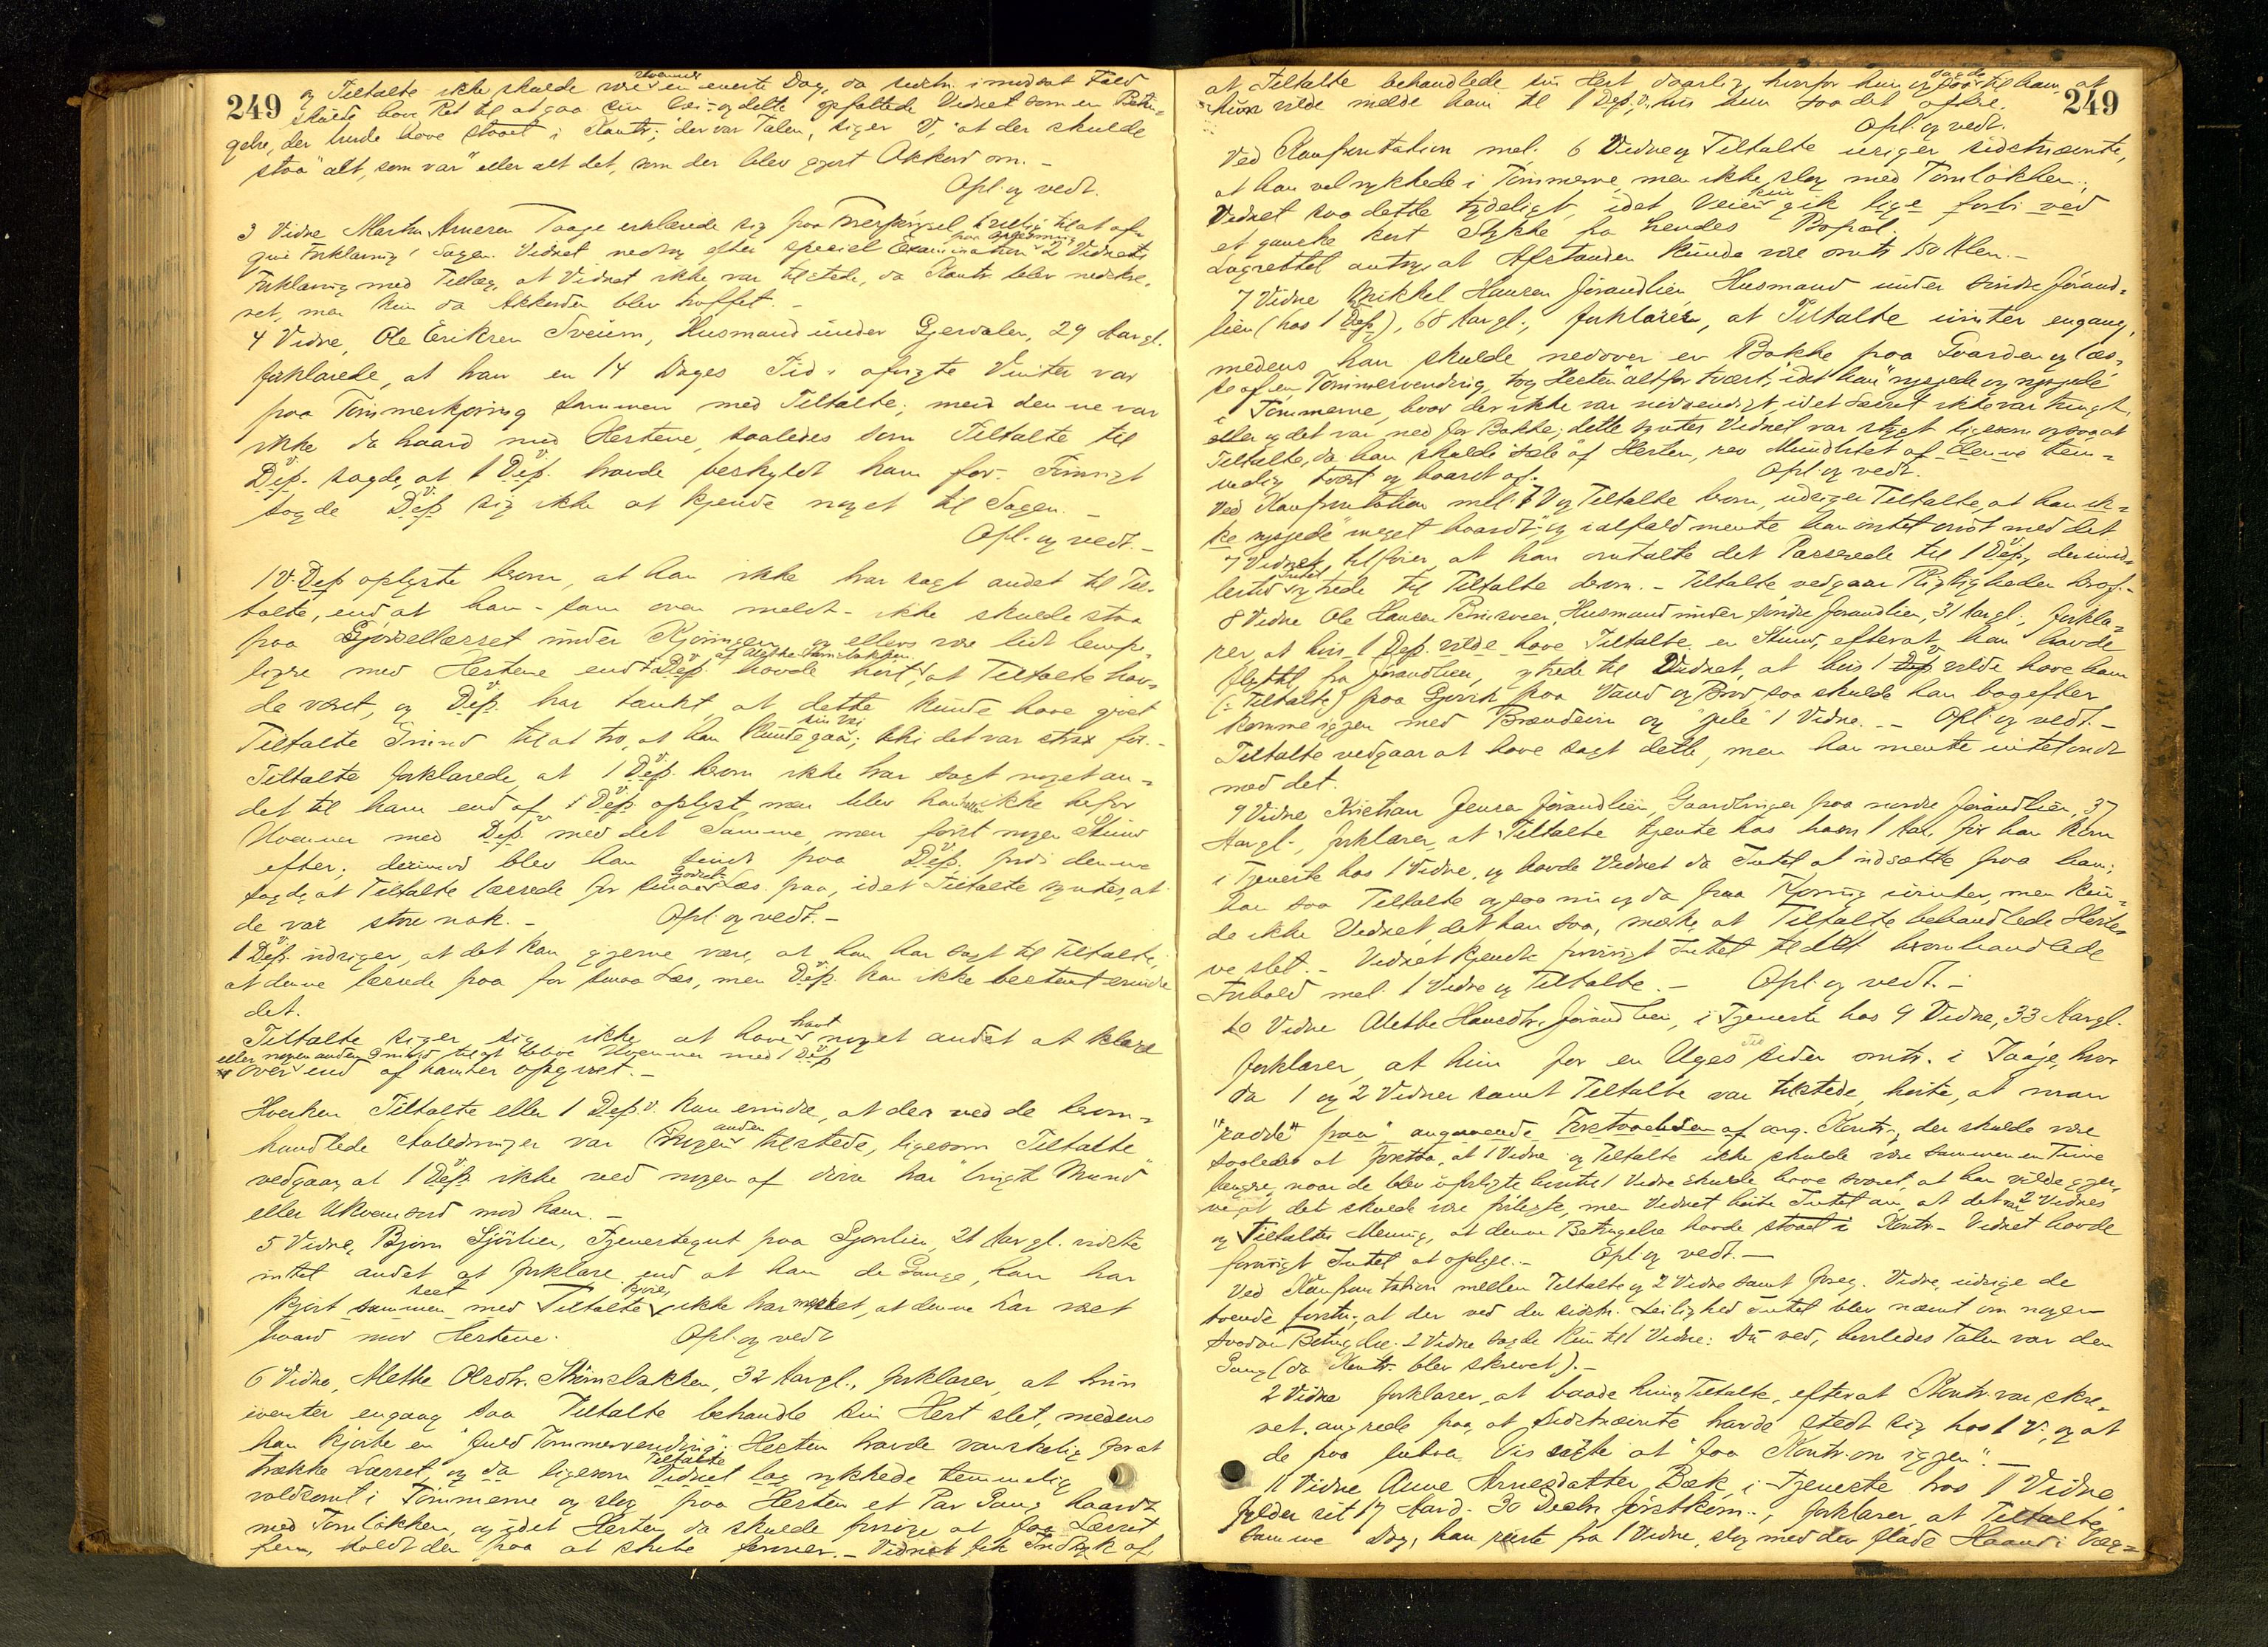 249
og Tiltalte ikke skulde være uvenner eneste Dag, da sidstn. i modsat Fald
skulde have Ret til at gaa sin Vei – og dette opfattede Vidnet som en Betin-
gelse, der burde have staaet i Kontr.; der var Talen, siger V, at der skulde
staa "alt, som var" eller alt det, som der blev gjort Akkord om. –
Opl. og vedt.
3 Vidne Marthe Arnesen Taaje erklærede sig paa Forespørgsel villig til at af-
give Forklaring i Sagen. Vidnet vedtog efter speciel Examination paa Oplæsning 2 Vidnets
Forklaring med Tillæg, at Vidnet ikke var tilstede, da Kontr. blev nedskre-
vet, men kun da Akkorden blev truffet. –
4 Vidne, Ole Eriksen Sveium, Husmand under Gjerdalen, 29 Aar gl.
forklarede, at han en 14 Dages Tid i afvigte Vinter var
paa Tømmerkjøring sammen med Tiltalte; men denne var
ikke da haard mod Hestene, saaledes som Tiltalte til
Dep. v. sagde, at 1 Dep. v. havde beskyldt ham for. Forøvrigt
sagde Dep. v. sig ikke at kjende noget til Sagen. –
Opl. og vedt. –
1 V. Dep. oplyste herom, at han ikke har sagt andet til Til-
talte, end at han – som oven meldt – ikke skulde staa
paa Gjødsellæsset under Kjøringen og ellers være lidt lempe-
ligere med Hestene end 1 Dep. v. havde hørt af Alethe Strømsløkken at Tiltalte hav-
de været, og Dep. v. har tænkt, at dette kunde have givet
Tiltalte Grund til at tro, at han kunde gaa sin Vei; thi det var strax før. –
Tiltalte forklarede at 1 Dep. v. herom ikke har sagt noget an-
det til ham end af 1 Dep. v. oplyst, men blev han ikke heller
Uvenner med Dep. v. med det Samme, men først nogen Stund
efter; derimod blev han sindt paa Dep. v. fordi denne
sagde, at Tiltalte læssede for smaa Læs paa, idet Tiltalte syntes, at
de var store nok. – Opl. og vedt. –
1 Dep. v. udsiger, at det kan gjerne være, at han har sagt til Tiltalte,
at denne læssede paa for smaa Læs, men Dep. v. kan ikke bestemt erindre
det.
Tiltalte siger sig ikke at have havt noget andet at klage
over eller nogen anden Grund til at blive Uvenner med 1 Dep. v. end af ham her opgivet. –
Hverken Tiltalte eller 1 Dep. v. kan erindre, at der ved de herom-
handlede Anledninger var nogen anden tilstede, ligesom Tiltalte
vedgaar, at 1 Dep. v. ikke ved nogen af disse har "brugt Mund"
eller Ukvemsord mod ham. –
5 Vidne, Bjørn Sjørlien, Tjenestegut paa Gjørlien, 21 Aar gl. vidste
intet andet at forklare, end at han de Gange, han har
kjørt sammen med seet Tiltalte kjøre, ikke har mærket, at denne har været
haard mod Hestene. Opl. og vedt
6 Vidne, Alethe Olsdtr. Strømsløkken, 32 Aar gl., forklarer, at hun
ivinter engang saa Tiltalte behandle sin Hest slet, medens
han kjørte en "fuld Tømmervending"; Hesten havde vanskelig for at
trække Læsset, og da ligesom Tiltalte rykkede temmelig
voldsomt i Tømmerne og slog paa Hesten et Par Gang haardt
med Tømløkken, og idet Hesten da skulde forsøge at faa Læsset
frem, holdt den paa at stube forover. – Vidnet fik Indtryk af,
249
at Tiltalte behandlede sin Hest daarlig hvorfor hun og sagde til ham at
hun vilde melde ham til 1 Dep. v., hvis hun saa det oftere.
Opl. og vedt.
Ved Konfrontation mel. 6 Vidne og Tiltalte udsiger sidstnævnte,
at han vel rykkede i Tømmerne, men ikke slog med Tømløkken;
Vidnet saa dette tydeligt, idet Veien kun gik lige forbi ved
et ganske kort Stykke fra hendes Bopæl.
Lagrettet antog, at Afstanden kunde være omtr. 150 Alen. –
7 Vidne Mikkel Hansen Jørandlien Husmand under søndre Jørand-
lien (hos 1 Dep. v.), 68 Aar gl., forklarer, at Tiltalte ivinter engang,
medens han skulde nedover en Bakke paa Gaarden og læs-
se af en Tømmervending, tog Hesten "altfor tvært", idet han "nyssjede og nyssjede"
i Tømmerne, hvor der ikke var nødvendigt, idet Læsset ikke var tungt,
eller og det var ned for Bakke; dette syntes Vidnet var stygt ligesom ogsaa at
Tiltalte, da han skulde "sæle" af Hesten, rev Mundbitet af denne tem-
melig tvært og haardt af. Opl. og vedt.
Ved Konfrontation mel. 7 V. og Tiltalte herom, udsiger Tiltalte, at han ik-
ke "nyssjede" meget haardt, og ialfald mente han intet ondt med det.
7 Vidnet tilføier, at han omtalte det Passerede til 1 Dep. v., der imid-
lertid Intet ytrede til Tiltalte derom. – Tiltalte vedgaar Rigtigheden heraf. –
8 Vidne Ole Hansen Husmand under søndre Jørandlien, 31 Aar gl., forkla-
rer, at hvis 1 Dep. vilde have Tiltalte en Stund, efterat han havde
flyttet fra Jørandlien, ytrede til Vidnet, at hvis 1 Dep. v. vilde have ham
(: Tiltalte) paa Gjøvik paa Vand og Brød, saa skulde han bagefter
komme igjen med Brændevin og "jule" 1 Vidne. – Opl. og vedt. –
Tiltalte vedgaar at have sagt dette, men han mente intet ondt
med det.
9 Vidne Kristian Jensen Jørandlien, Gaardbruger paa nordre Jørandlien, 37
Aar gl., forklarer, at Tiltalte tjente hos ham 1 Aar, før han kom
i Tjeneste hos 1 Vidne, og havde Vidnet da Intet at udsætte paa ham;
han saa Tiltalte ogsaa nu og da paa Kjøring ivinter, men kun-
de ikke Vidnet, det han saa, mærke, at Tiltalte behandlede Heste-
ne slet. – Vidnet kjendte forøvrigt Intet til det heromhandlede
Forhold mel. 1 Vidne og Tiltalte. – Opl. og vedt. –
10 Vidne Alethe Hansdtr. Jørandlien, i Tjeneste hos 9 Vidne, 33 Aar gl.
forklarer, at hun for en Uges Tid siden omtr. i Taaje, hvor
da 1 og 2 Vidner samt Tiltalte var tilstede, hørte, at man
"radde" paa angaaende Forstaaelsen af omg. Kontr., der skulde være
saaledes at forstaa, at 1 Vidne og Tiltalte ikke skulde være sammen en Time
længre, naar de blev uforligte, hvortil 1 Vidne skulde have svaret, at han vilde gjer-
ne, at det skulde være forligte, men Vidnet hørte Intet om, at det var 2 Vidnes
og Tiltaltes Mening, at denne Betingelse havde staaet i Kontr. – Vidnet havde
forøvrigt Intet at oplyse. – Opl. og vedt. –
Ved Konfrontation mellem Tiltalte og 2 Vidne samt foreg. Vidne, udsige de
tvende førstn., at der ved den sidstn. Leilighed Intet blev nævnt om nogen
saadan Betingelse. 2 Vidne sagde kun til 1 Vidne: Du ved, hvorledes Talen var den
Gang (da Kontr. blev skrevet). –
2 Vidne forklarer, at baade hun og Tiltalte, efterat Kontr. var skre-
vet, angrede paa, at Sidstnævnte havde stedt sig hos 1 V., og at
de paa Vis søgte at "faa Kontr. om igjen". –
11 Vidne Anne Arnesdatter Bæk, i Tjeneste hos 1 Vidne
fylder sit 17 Aar d. 30 Decbr. førstkom., forklarer, at Tiltalte
samme Dag, han reiste fra 1 Vidne, slog med den flade Haand i Væg-